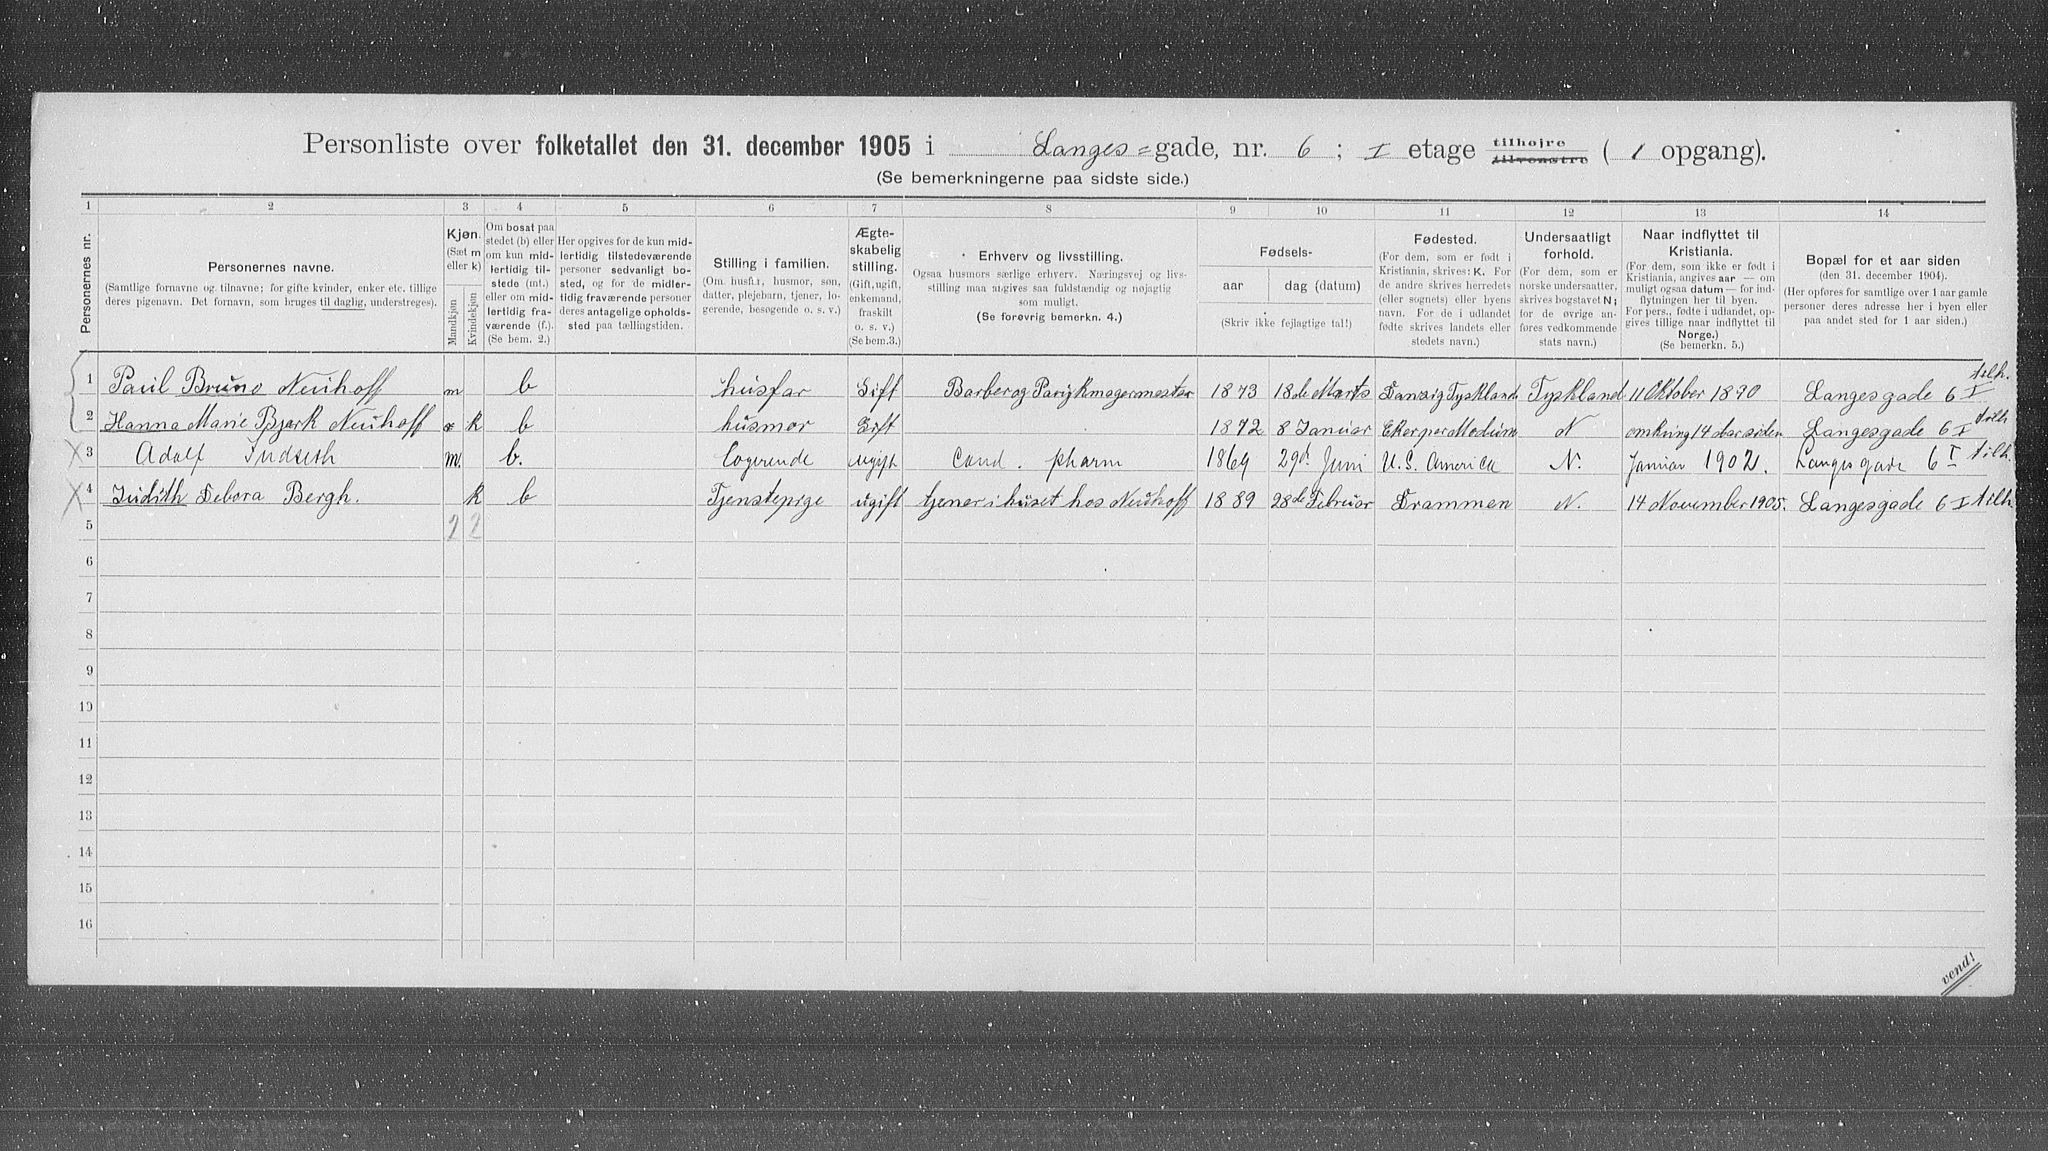 Personliste over folketallet den 31. december 1905 i Langes=gade, nr. 6; I etage tilhøjre tilvenstre ( 1 opgang).
(Se bemerkningerne paa sidste side.)
1 2 3 4 5 6 7 8 9 10 11 12 13 14
Personernes nr.
Personernes navne.
(Samtlige fornavne og tilnavne; for gifte kvinder, enker etc. tillige
deres pigenavn. Det fornavn, som bruges til daglig, understreges).
Kjøn.
(Sæt m
eller k)
Mandkjøn
Kvindekjøn
Om bosat paa
stedet (b) eller
om kun mid-
lertidig til-
stede (mt.)
eller om mid-
lertidig fra-
værende (f.).
(Se bem. 2.)
Her opgives for de kun mid-
lertidig tilstedeværende
personer sedvanligt bo-
sted, og for de midler-
tidig fraværende personer
deres antagelige opholds-
sted paa tællingstiden.
Stilling i familien.
(Om husfar, husmor, søn,
datter, plejebarn, tjener, lo-
gerende, besøgende o. s. v.)
Ægte-
skabelig
stilling.
(Gift, ugift,
enkemand,
fraskilt
o. s. v.)
(Se bem.3.)
Erhverv og livsstilling.
Ogsaa husmors særlige erhverv. Næringsvej og livs-
stilling maa angives saa fuldstændig og nøjagtig
som muligt.
(Se forøvrig bemerkn. 4.)
Fødsels-
aar dag (datum)
(Skriv ikke fejlagtige tal!)
Fødested.
(For dem, som er født i
Kristiania, skrives: K. For
de andre skrives herredets
(eller sognets) eller byens
navn. For de i udlandet
fødte skrives landets eller
stedets navn.)
Undersaatligt
forhold.
(For dem, som er
norske undersaatter,
skrives bogstavet N;
for de øvrige an-
føres vedkommende
stats navn.)
Naar indflyttet til
Kristiania.
(For dem, som ikke er født i
Kristiania, angives aar — om
muligt ogsaa datum — for ind-
flytningen her til byen.
For pers., fødte i udlandet, op-
gives tillige naar indflyttet til
Norge.)
(Se bemerkn. 5.)
Bopæl for et aar siden
(den 31. december 1904).
(Her opføres for samtlige over 1 aar gamle
personer deres adresse her i byen eller
paa andet sted for 1 aar siden.)
1 Paul Bruno Neuhoff m b husfar Gift Barber og Parykmagermester 1873 18de Marts Danzig Tyskland Tyskland 11 Oktober 1890 Langesgade 6 I tilh.
2 Hanna Marie Bjerk Neuhoff k b husmor Gift 1872 8 Januar Eker per Modum N omkring 14 Aar siden Langesgade 6 I tilh
3 Adolf Indseth m. b. Logerende ugift cand. pharm 1869 29d Juni U.S. America N. Januar 1902. Langesgade 6 I tilh.
4 Judith Debora Bergh. k b Tjenstepige ugift tjener i huset hos Neuhoff 1889 28de Februar Drammen N. 14 November 1905. Langesgade 6 I tilh.
5 2 2
6
7
8
9
10
11
12
13
14
15
16
vend!